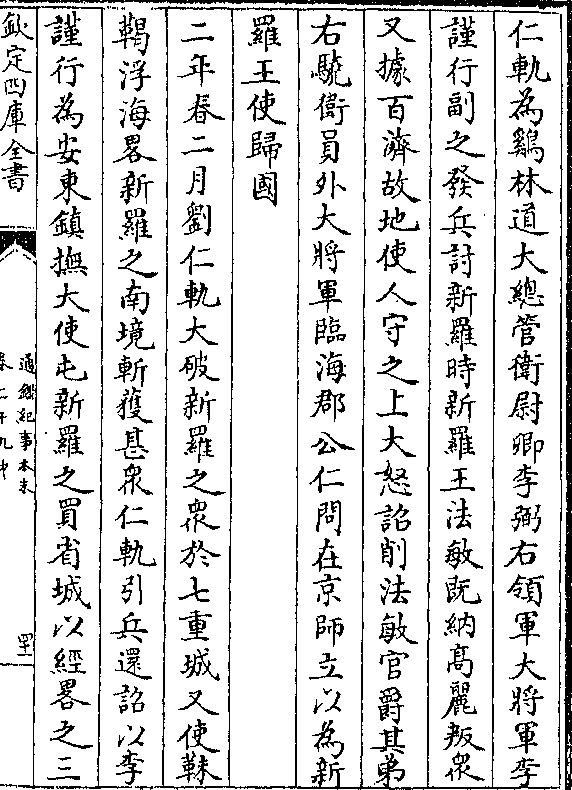 仁軌為鷄林道大總管衛尉卿李弼右領軍大將軍李
謹行副之發兵討新羅時新羅王法敏既納高麗叛衆
又據百濟故地使人守之上大怒詔削法敏官爵其弟
右驍衛員外大將軍臨海郡公仁問在京師立以為新
羅王使歸國
二年春二月劉仁軌大破新羅之衆於七重城又使靺
鞨浮海畧新羅之南境斬獲甚衆仁軌引兵還詔以李
謹行為安東鎮撫大使屯新羅之買省城以經畧之三
欽定四庫全書
通鑑紀事本末
卷二十九中